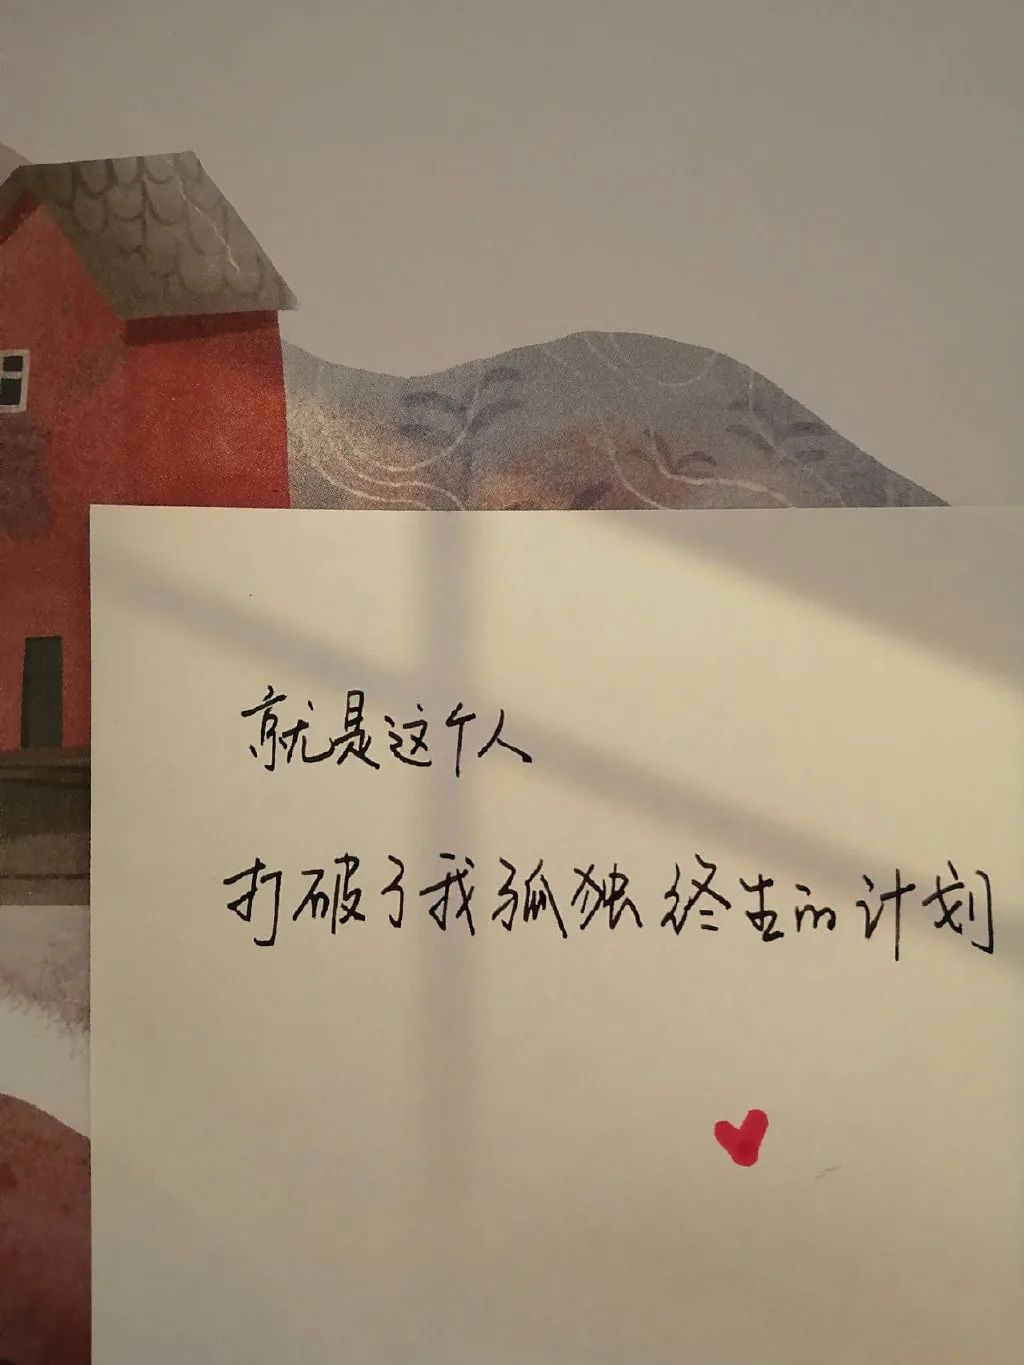 就是这个人
打破了我孤独终生的计划